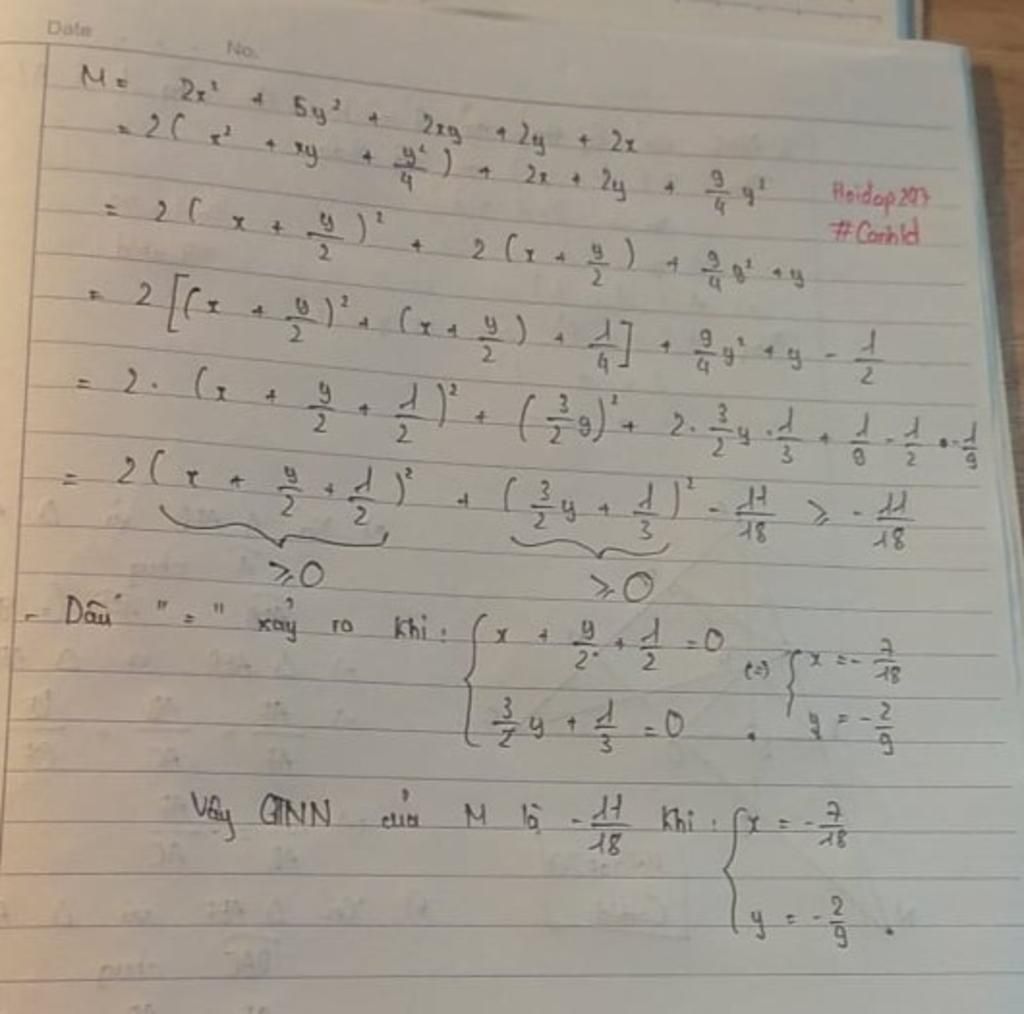 Date No.
M = 2x² + 5y² + 2xy + 2y + 2x
= 2( x² + xy + y²/4 ) + 2x + 2y + 9/4 y²
Hoidap247
#Canhld
= 2( x + y/2 )² + 2( x + y/2 ) + 9/4 y² + y
= 2[( x + y/2 )² + ( x + y/2 ) + 1/4 ] + 9/4 y² + y - 1/2
= 2 . ( x + y/2 + 1/2 )² + ( 3/2 y )² + 2 . 3/2 y . 1/3 + 1/9 - 1/2 - 1/9
= 2( x + y/2 + 1/2 )² + ( 3/2 y + 1/3 )² - 11/18 ⩾ - 11/18
⩾ 0 ⩾ 0
- Dấu " = " xảy ra khi : { x + y/2 + 1/2 = 0 (=) { x = - 7/18
3/2 y + 1/3 = 0 . y = - 2/9
Vậy GTNN của M là - 11/18 khi : { x = - 7/18
y = - 2/9 .